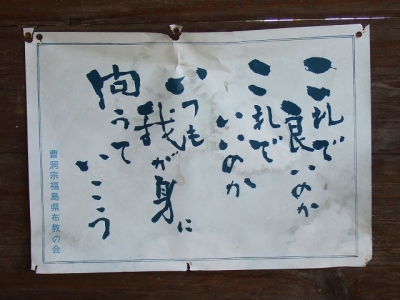 これで
良いのか
これで
いいのか
いつも
我が身に
問うて
いこう
曹洞宗福島県布教の会